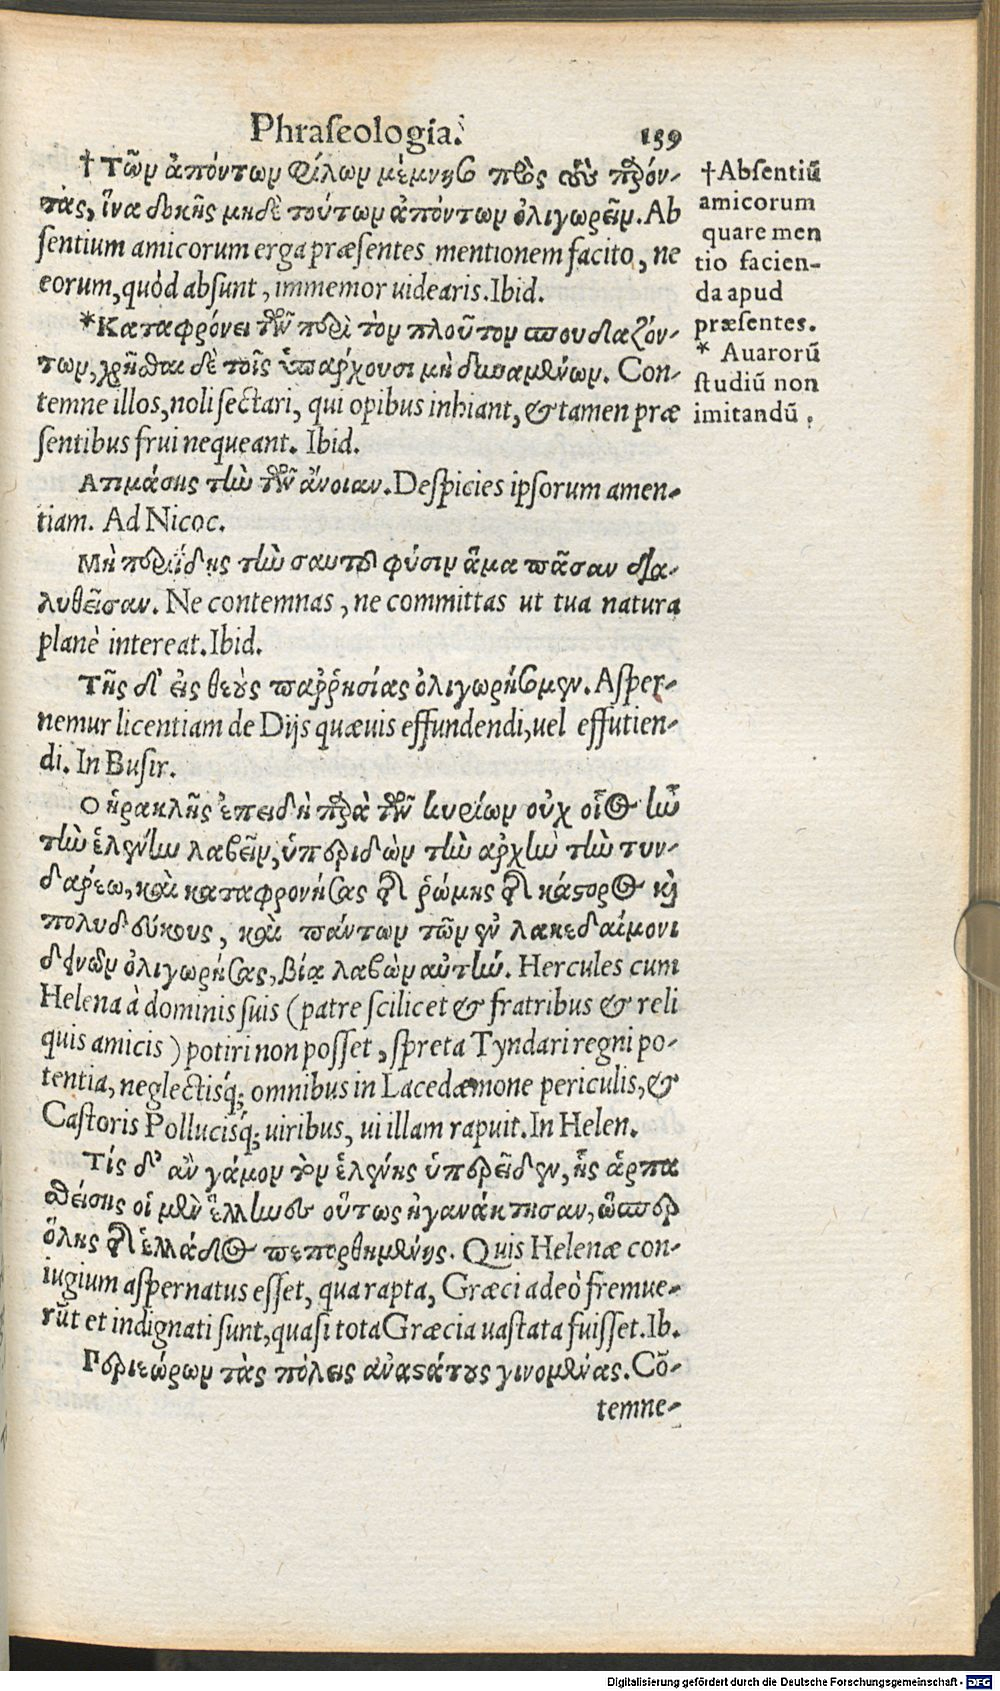 Phraseologia. 159
† Τῶν ἀπόντων φίλων μέμνησο πρὸς τοὺς παρόν-
τας, ἵνα δοκῇς μηδὲ τούτων ἀπόντων ὀλιγωρεῖν. Ab
sentium amicorum erga præsentes mentionem facito, ne
eorum, quòd absunt, immemor uidearis. Ibid.
*Καταφρόνει τῶν περὶ τὸν πλοῦτον σπουδαζόν-
των, χρῆσθαι δὲ τοῖς ὑπάρχουσι μὴ δυναμένων. Con-
temne illos, noli sectari, qui opibus inhiant, & tamen præ
sentibus frui nequeant. Ibid.
Ατιμάσῃς τὴν τῶν ἄνοιαν. Despicies ipsorum amen-
tiam. Ad Nicoc.
Μὴ περιίδῃς τὴν σαυτοῦ φύσιν ἅμα πᾶσαν δια-
λυθεῖσαν. Ne contemnas, ne committas ut tua natura
planè intereat. Ibid.
Τῆς δ' εἰς θεοὺς παῤῥησίας ὀλιγωρήσομεν. Asper-
nemur licentiam de Dijs quæuis effundendi, uel effutien-
di. In Busir.
Ο ἡρακλῆς ἐπειδὴ παρὰ τῶν κυρίων οὐχ οἷός ἦν
τὴν ἑλένην λαβεῖν, ὑπεριδὼν τὴν ἀρχὴν τὴν τυν-
δαρέω, καὶ καταφρονήσας τῆς ῥώμης τῆς κάστορος καὶ
πολυδεύκους, καὶ πάντων τῶν ἐν λακεδαίμονι
δεινῶν ὀλιγωρήσας, βίᾳ λαβὼν αὐτήν. Hercules cum
Helena à dominis suis (patre scilicet & fratribus & reli
quis amicis) potiri non posset, spreta Tyndari regni po-
tentia, neglectisq́; omnibus in Lacedæmone periculis, &
Castoris Pollucisq́; uiribus, ui illam rapuit. In Helen.
Τίς δ' ἂν γάμον τὸν ἑλένης ὑπερεῖδεν, ἧς ἁρπα
σθείσης οἱ μὲν ἕλληνες οὕτως ἠγανάκτησαν, ὥσπερ
ὅλης τῆς ἑλλάδος πεπορθημένης. Quis Helenæ con-
iugium aspernatus esset, qua rapta, Græci adeò fremue-
rūt et indignati sunt, quasi tota Græcia uastata fuisset. Ib.
Περιεώρων τὰς πόλεις ἀναστάτους γινομένας. Cō-
temne-
†Absentiū
amicorum
quare men
tio facien-
da apud
præsentes.
* Auarorū
studiū non
imitandū.
Digitalisierung gefördert durch die Deutsche Forschungsgemeinschaft - DFG